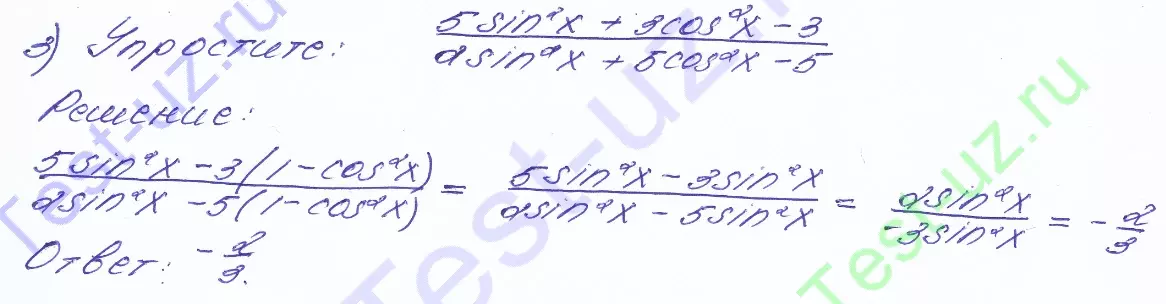 3) Упростите: (5sin²x + 3cos²x - 3)/(2sin²x + 5cos²x - 5)
Решение:
(5sin²x - 3(1 - cos²x))/(2sin²x - 5(1 - cos²x)) = (5sin²x - 3sin²x)/(2sin²x - 5sin²x) = (2sin²x)/(-3sin²x) = -2/3
Ответ: -2/3.
Test-uz.ru
Test-uz.ru
Testuz.ru